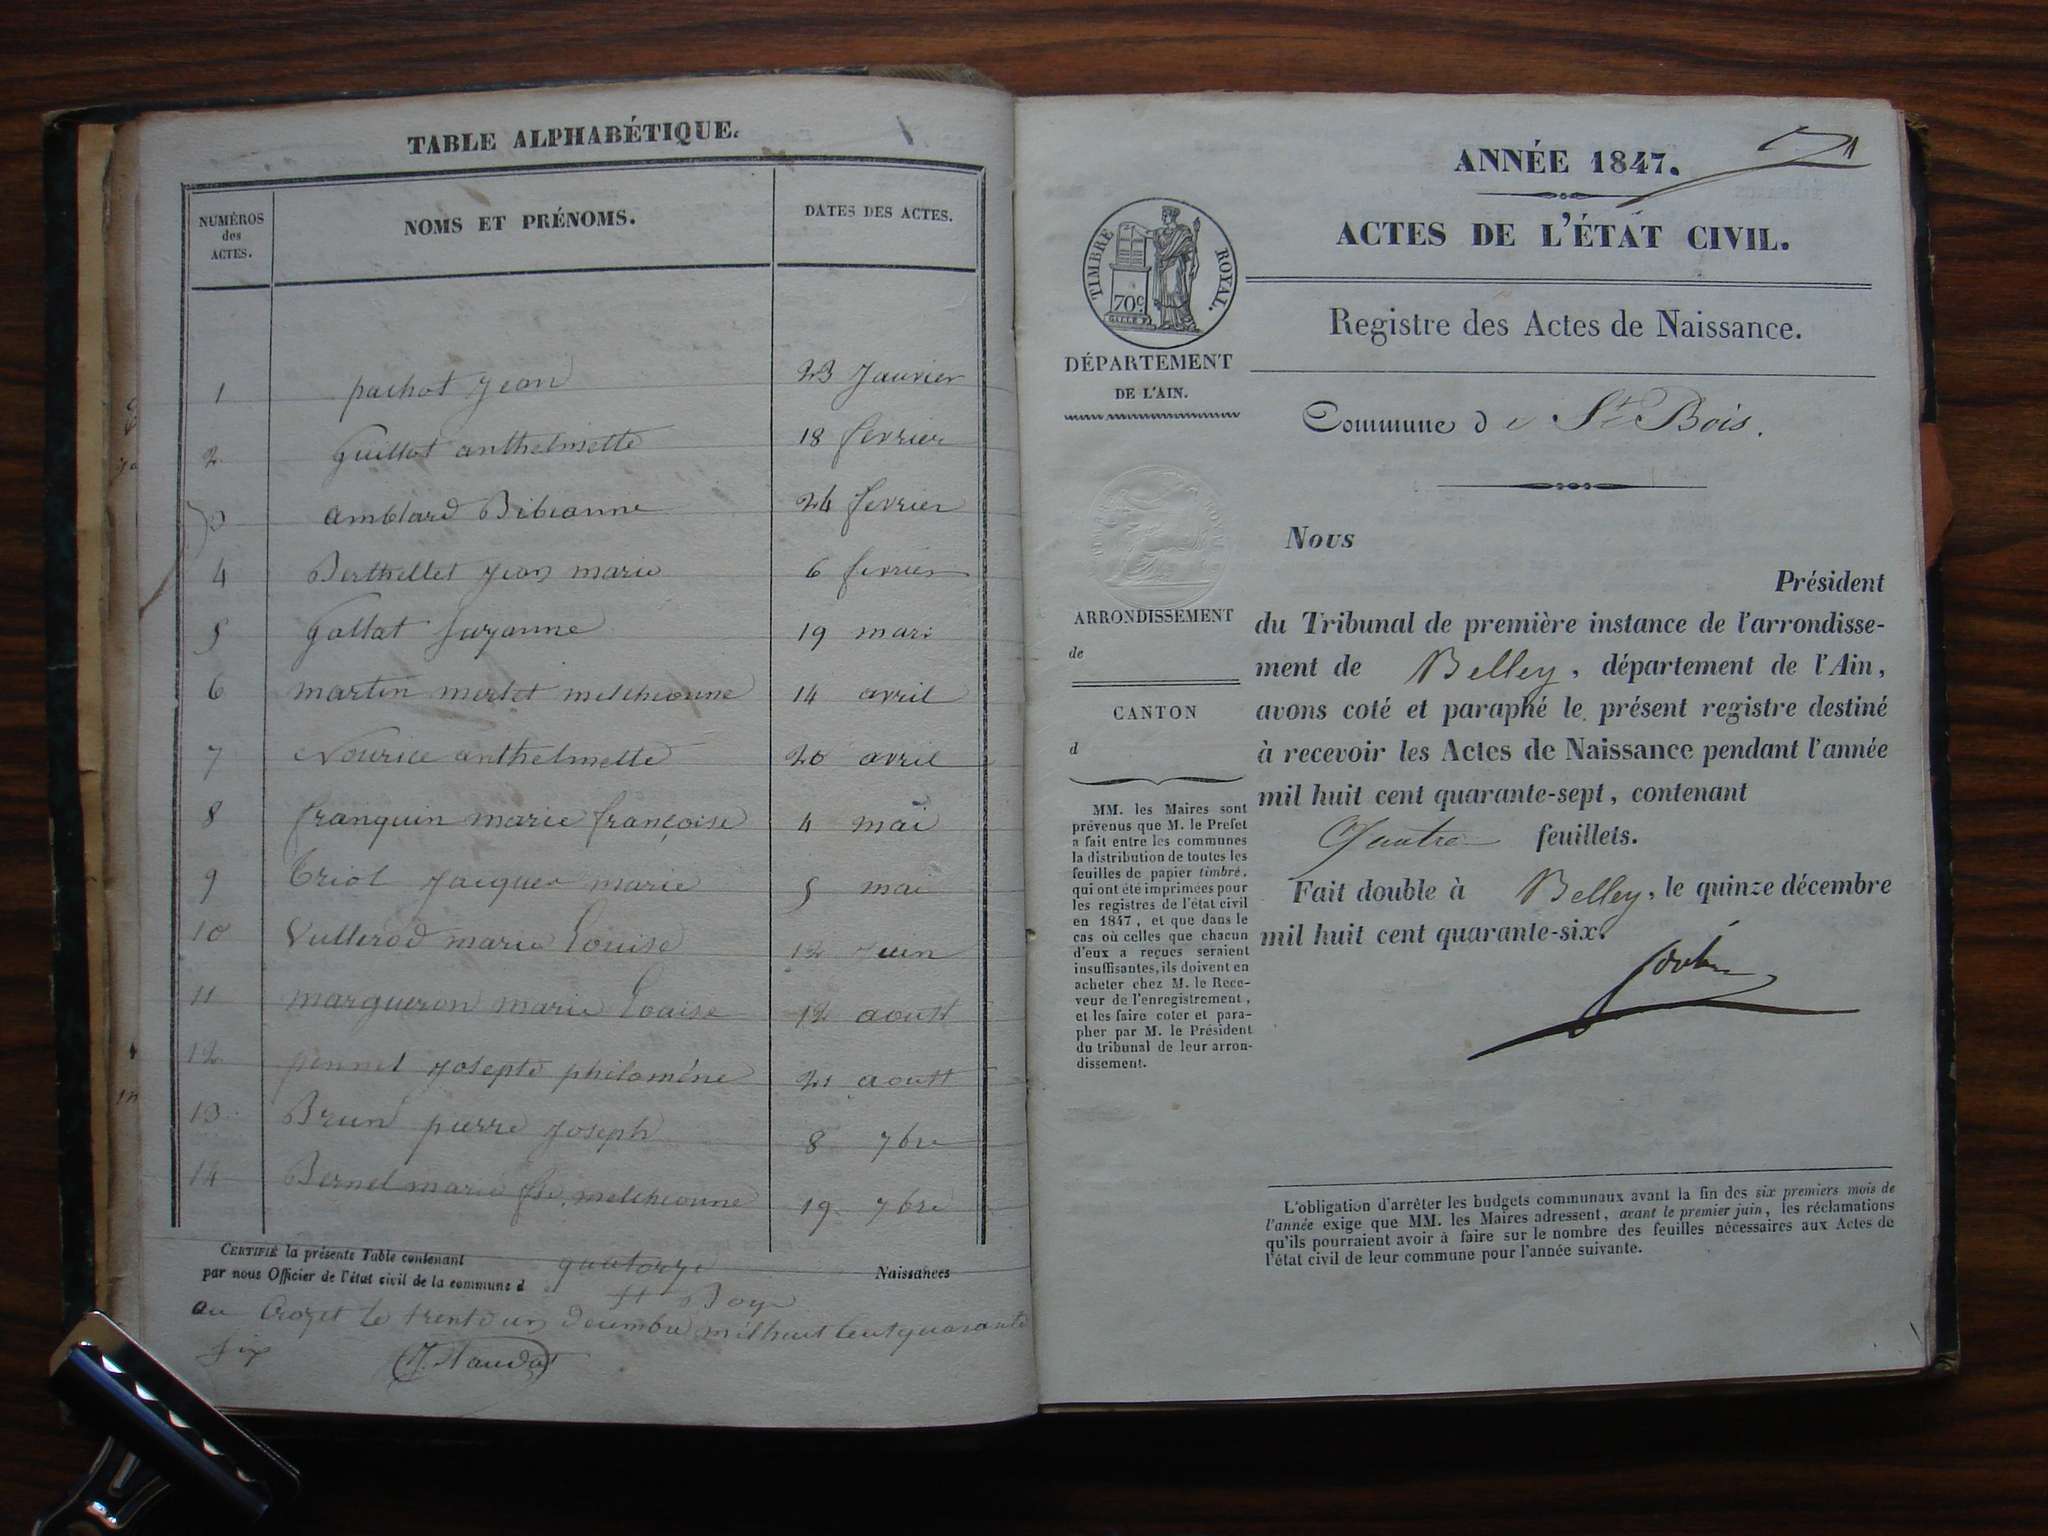 TABLE ALPHABÉTIQUE.
NUMÉROS
des
ACTES.
NOMS ET PRÉNOMS.
DATES DES ACTES.
1 pachot jean 23 Janvier
2 Guillot anthelmette 18 fevrier
3 amblard Bibianne 24 fevrier
4 Berthellet jean marie 6 fevrier
5 Gallat Suzanne 19 mars
6 martin merlet melchionne 14 avril
7 Nourice anthelmette 20 avril
8 franquin marie françoise 4 mai
9 triol jacques marie 5 mai
10 Vullerod marie Louise 12 Juin
11 margueron marie Louise 12 aoutt
12 pennel josepte philomène 21 aoutt
13 Brun pierre joseph 8 7bre
14 Bernel marie melchionne 19 7bre
CERTIFIÉ la présente Table contenant quatorze Naissances
par nous Officier de l'état civil de la commune d St Boys
au Crozet le trente un decembre mil huit cent quarante
six
ANNÉE 1847.
1
ACTES DE L'ÉTAT CIVIL.
TIMBRE ROYAL.
70c
Registre des Actes de Naissance.
DÉPARTEMENT
DE L'AIN.
Commune de St Bois.
Nous
Président
du Tribunal de première instance de l'arrondisse-
ment de Belley, département de l'Ain,
avons coté et paraphé le présent registre destiné
à recevoir les Actes de Naissance pendant l'année
mil huit cent quarante-sept, contenant
Quatre feuillets.
Fait double à Belley, le quinze décembre
mil huit cent quarante-six.
ARRONDISSEMENT
de
CANTON
d
MM. les Maires sont
prévenus que M. le Prefet
a fait entre les communes
la distribution de toutes les
feuilles de papier timbré,
qui ont été imprimées pour
les registres de l'état civil
en 1847, et que dans le
cas où celles que chacun
d'eux a reçues seraient
insuffisantes, ils doivent en
acheter chez M. le Rece-
veur de l'enregistrement,
et les faire coter et para-
pher par M. le Président
du tribunal de leur arron-
dissement.
L'obligation d'arrêter les budgets communaux avant la fin des six premiers mois de
l'année exige que MM. les Maires adressent, avant le premier juin, les réclamations
qu'ils pourraient avoir à faire sur le nombre des feuilles nécessaires aux Actes de
l'état civil de leur commune pour l'année suivante.